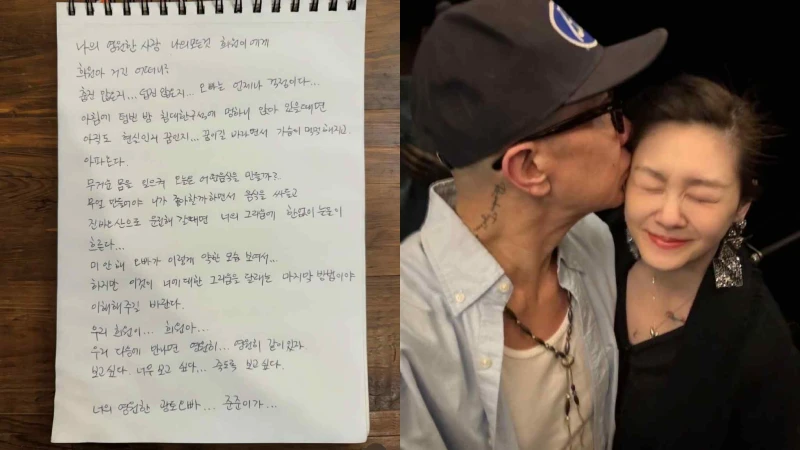 나의 영원한 사랑 나의모든것 희원이에게
희원아 거긴 어떠니?
춥진 않은지... 덥진 않은지... 오빠는 언제나 걱정이다...
아침에 텅빈 방 침대한구석에 멍하니 앉아 있을때면
아직도 현실인지 꿈인지... 꿈이길 바라면서 가슴이 먹먹해지고.
아파온다.
무거운 몸을 일으켜 오늘은 어떤음식을 만들까?
무얼 만들어야 니가 좋아할까하면서 음식을 싸들고
진바오산으로 운전해 갈때면 너의 그리움에 한없이 눈물이
흐른다...
미안해 오빠가 이렇게 약한 모습 보여서...
하지만 이것이 너에대한 그리움을 달래는 마지막 방법이야
이해해주길 바란다.
우리 희원이... 희원아...
우리 다음에 만나면 영원히... 영원히 같이있자
보고싶다. 너무 보고 싶다... 죽도록 보고싶다.
너의 영원한 광토오빠... 준준이가...